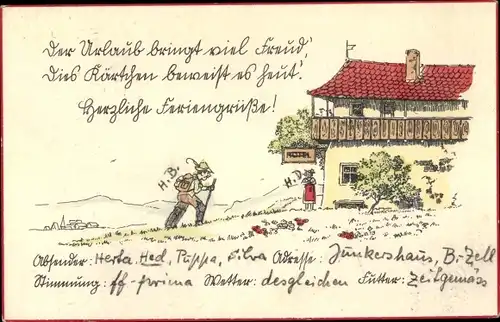 Der Urlaub bringt viel Freud',
Dies Kärtchen beweist es heut'.
Herzliche Feriengrüße!
H.B.
H.D.
Absender: Herta, Hed, Puppa, Silva Adresse: Junkershaus, B.-Zell
Stimmung: ff-prima Wetter: desgleichen Futter: Zeitgemäss